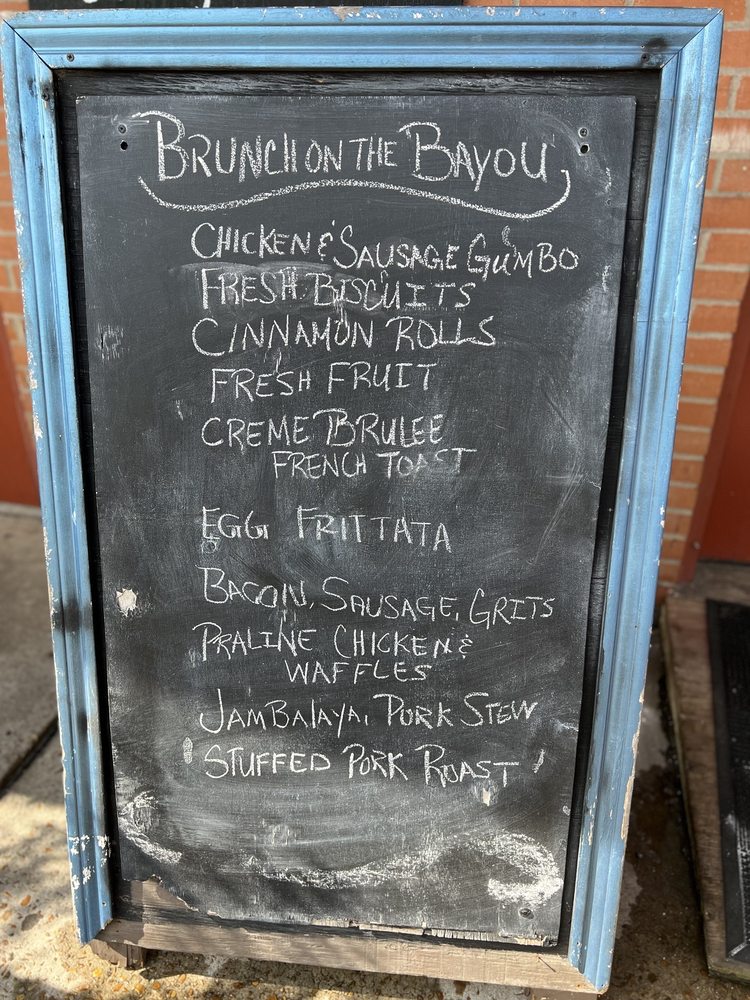 BRUNCH ON THE BAYOU
CHICKEN & SAUSAGE GUMBO
FRESH BISCUITS
CINNAMON ROLLS
FRESH FRUIT
CREME BRULEE
FRENCH TOAST
EGG FRITTATA
BACON, SAUSAGE, GRITS
PRALINE CHICKEN &
WAFFLES
JAMBALAYA, PORK STEW
STUFFED PORK ROAST